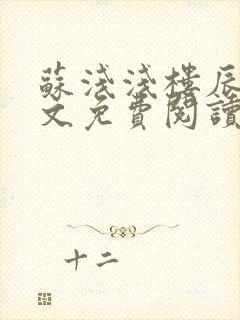 蘇淺淺樓辰
文免費閱讀
十二